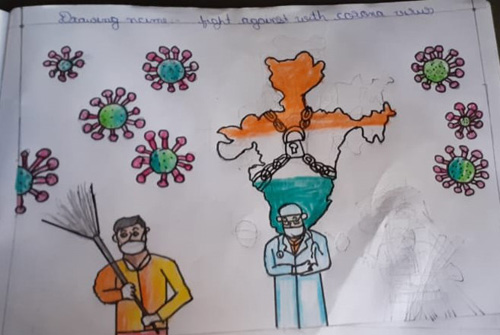 Drawing name.. fight against with corona virus